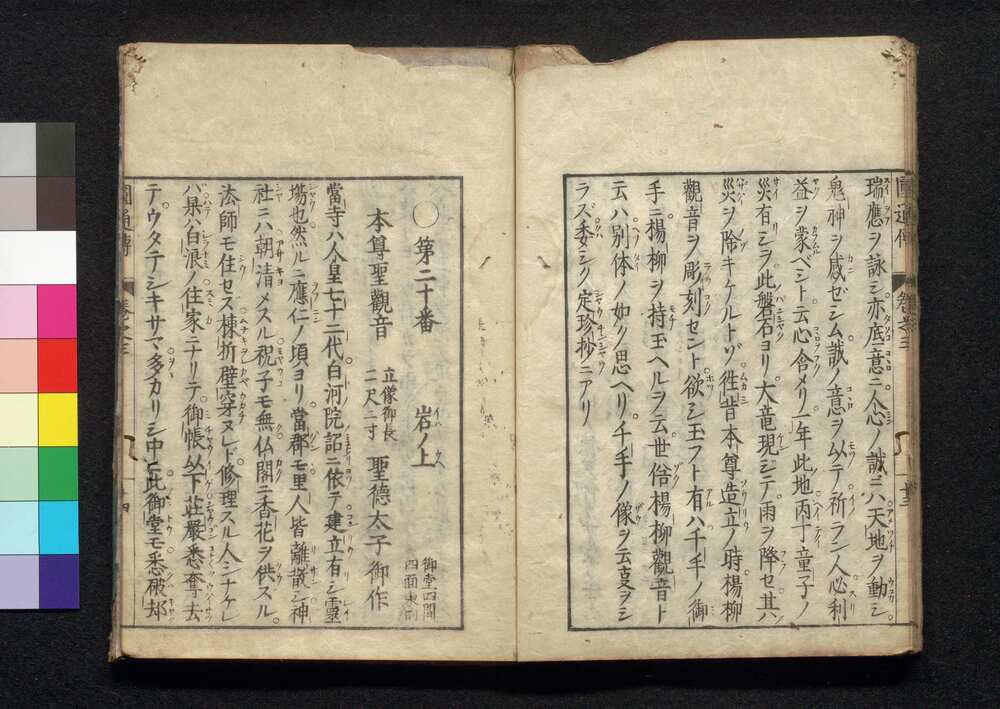 瑞應ヲ詠シ亦底意ニ人心ノ誠ニハ天地ヲ動シ
鬼神ヲ感ゼシム誠ノ意ヲ以テ祈ラン人必利
益ヲ蒙ベシト云心含メリ一年此地丙丁童子ノ
災有リシヲ此盤石ヨリ大竜現シテ雨ヲ降セ其
災ヲ除キケルトゾ徃昔本尊造立ノ時楊柳
觀音ヲ彫刻セント欲シ玉フト有ハ千手ノ御
手ニ楊柳ヲ持玉ヘルヲ云世俗楊柳觀音ト
云ハ別体ノ如ク思ヘリ千手ノ像ヲ云叓ヲシ
ラズ委シク定珍抄ニアリ
圓通傳 卷之三
○第二十番 岩ノ上
本尊聖觀音 立像御長二尺二寸 聖德太子御作
御堂四間四面東向
當寺ハ人皇七十二代白河院詔ニ依テ建立有シ靈
塲也然ルニ應仁ノ頃ヨリ當郡モ里人皆離散シ神
社ニハ朝清メスル祝子モ無仏閣ニ香花ヲ供スル
法師モ住セス棟折壁穿ヌレド修理スル人シナケレ
バ果ハ白浪ノ住家ニナリテ御帳以下莊嚴悉奪去
テウタテシキサマ多カリシ中ニ此御堂モ悉破却
圓通傳 卷之三 十四